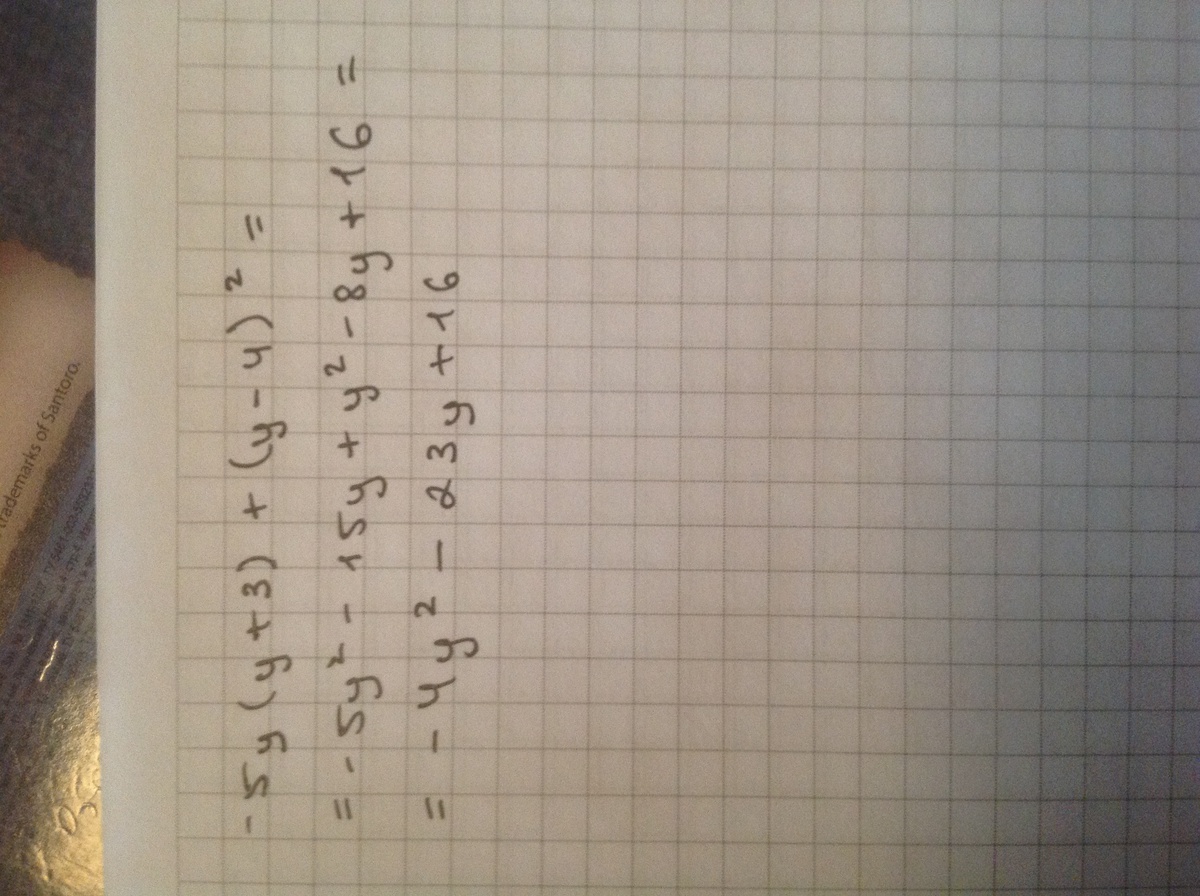 -5y(y+3)+(y-4)² =
= -5y² - 15y + y² - 8y + 16 =
= -4y² - 23y + 16
trademarks of Santoro.